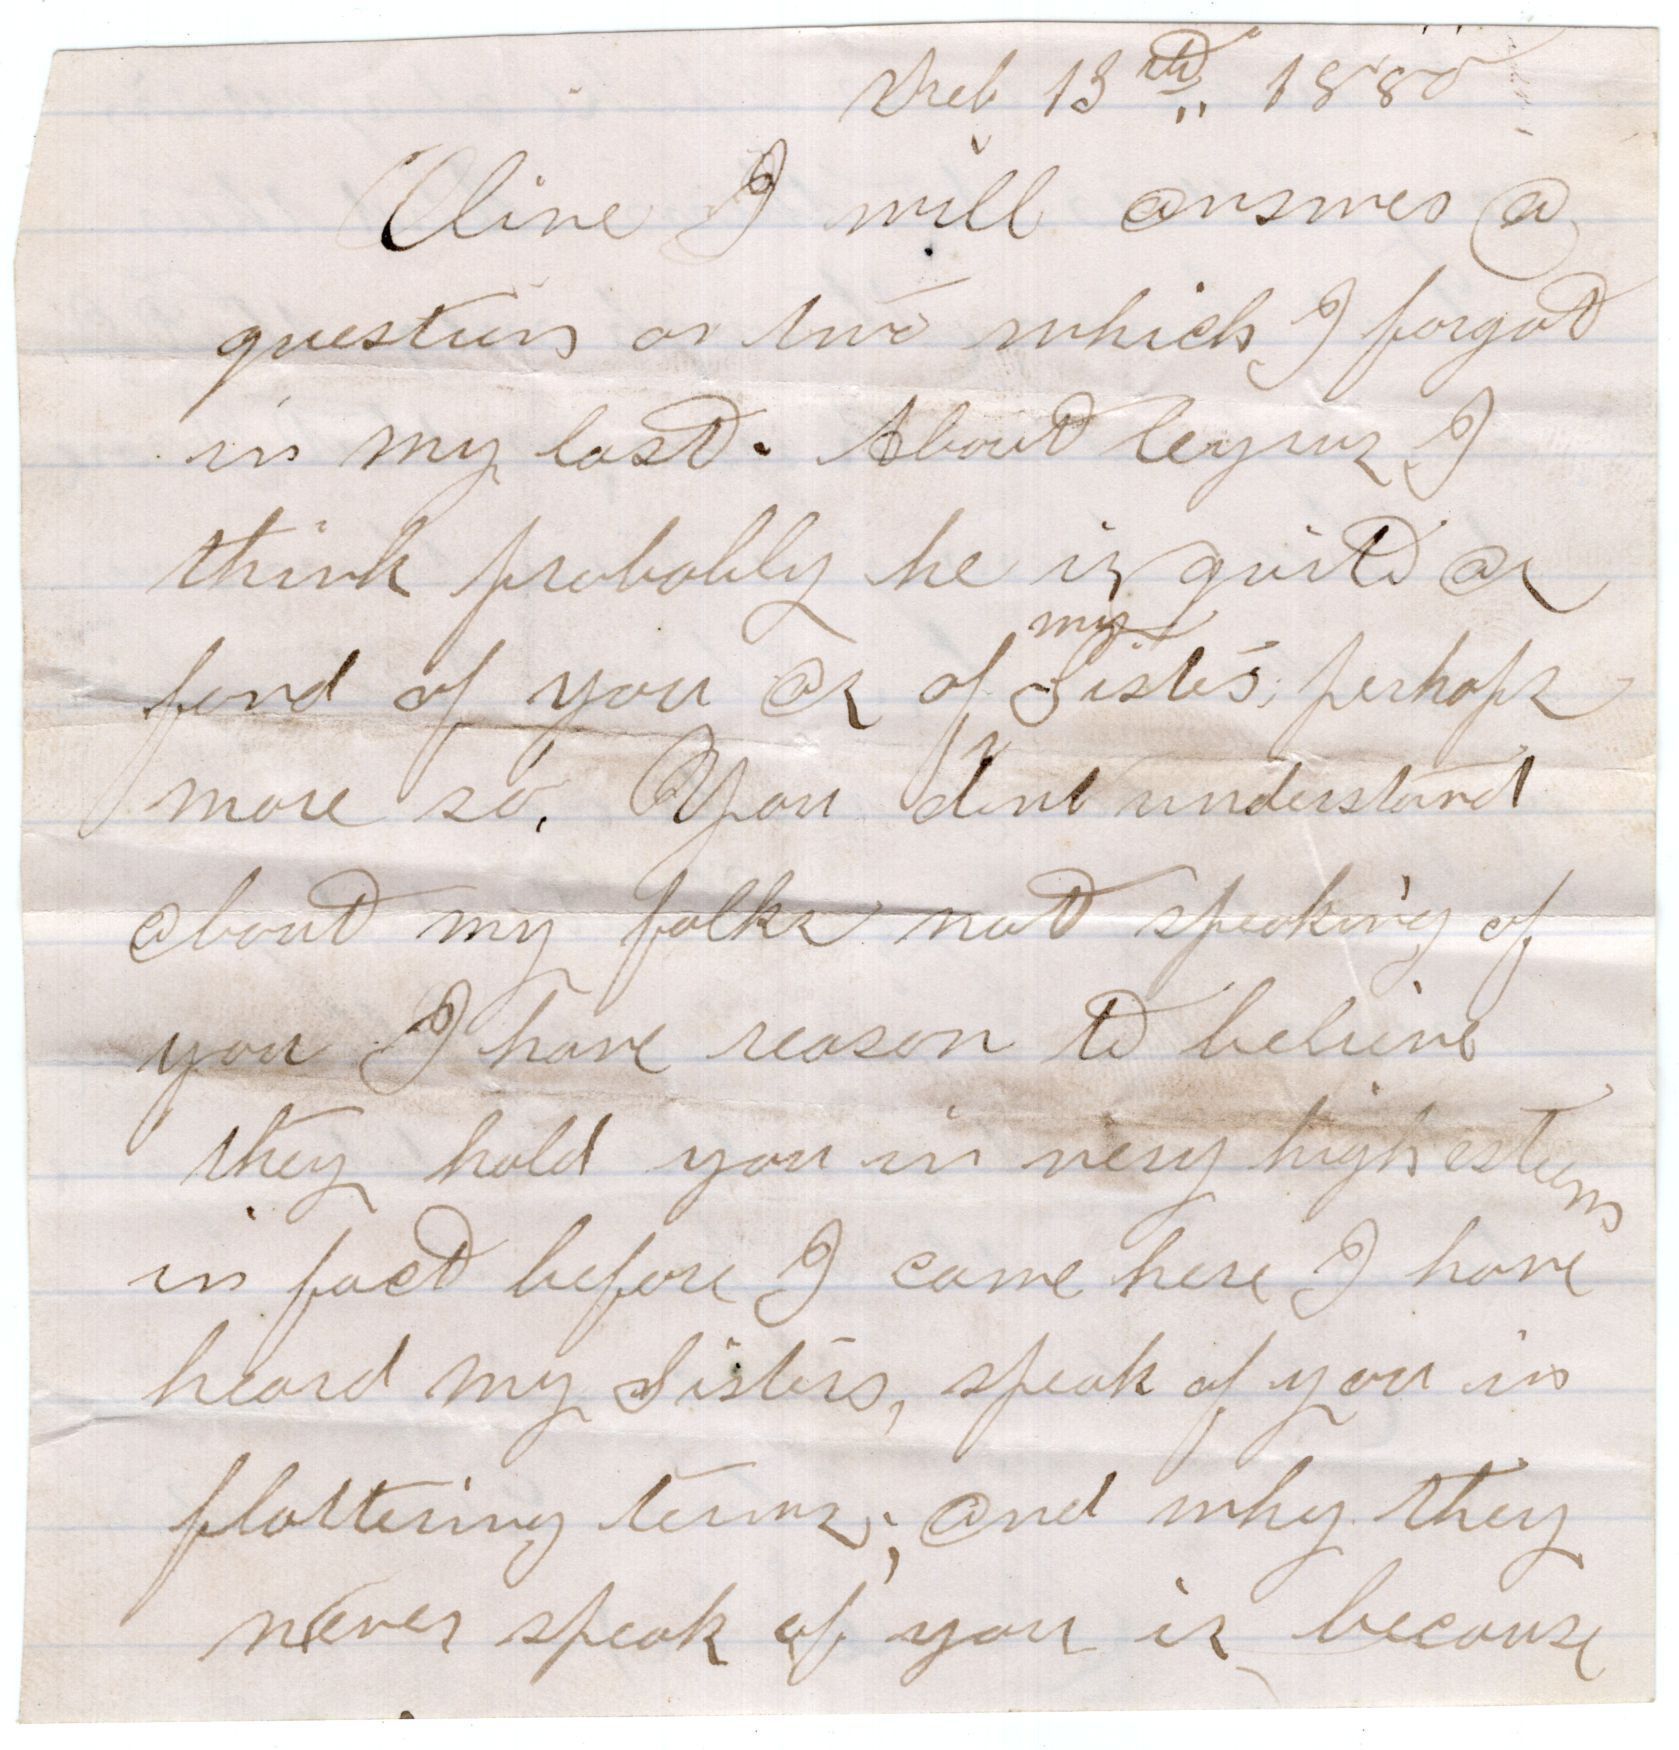 Feb 13th, 1880
Oline I will answer a
question or two which I forgot
in my last. About I
think probably he is quite as
fond of you as of my Sister, perhaps
more so. You dont understand
about my folks not speaking of
you I have reason to believe
they hold you in very high esteem
in fact before I came here I have
heard my Sisters, speak of you in
flattering terms; and why they
never speak of you is because